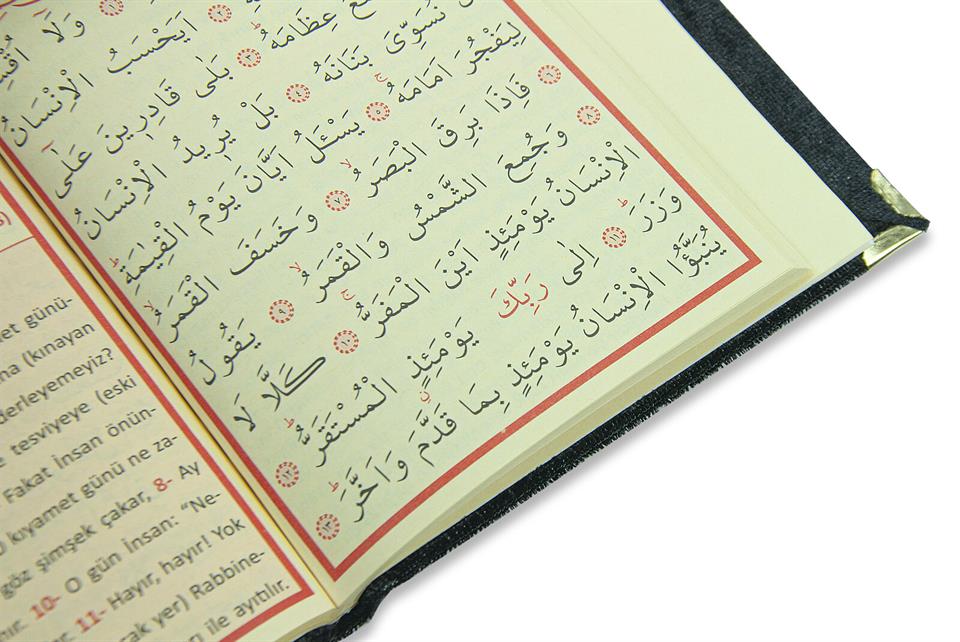 ١ وَلَا
اَيَحْسَبُ الْاِنْسَانُ
عِظَامَهُ ٣ بَلٰى قَادِرِينَ عَلٰٓى
نُسَوِّىَ بَنَانَهُ ٤ بَلْ يُرِيدُ الْاِنْسَانُ
لِيَفْجُرَ اَمَامَهُ ٥ يَسْـَٔلُ اَيَّانَ يَوْمُ الْقِيٰمَةِ
٦ فَاِذَا بَرِقَ الْبَصَرُ ٧ وَخَسَفَ الْقَمَرُ
٨ وَجُمِعَ الشَّمْسُ وَالْقَمَرُ ٩ يَقُولُ
الْاِنْسَانُ يَوْمَئِذٍ اَيْنَ الْمَفَرُّ ١٠ كَلَّا لَا
وَزَرَ ١١ اِلٰى رَبِّكَ يَوْمَئِذٍ الْمُسْتَقَرُّ ١٢
يُنَبَّؤُا الْاِنْسَانُ يَوْمَئِذٍ بِمَا قَدَّمَ وَاَخَّرَ ١٣
günü-
(kınayan
derleyemeyiz?
tesviyeye (eski
Fakat İnsan önün-
kıyamet günü ne za-
göz şimşek çakar, 8- Ay
10- O gün İnsan: "Ne-
11- Hayır, hayır! Yok
yer) Rabbine-
ile ayıtılır.